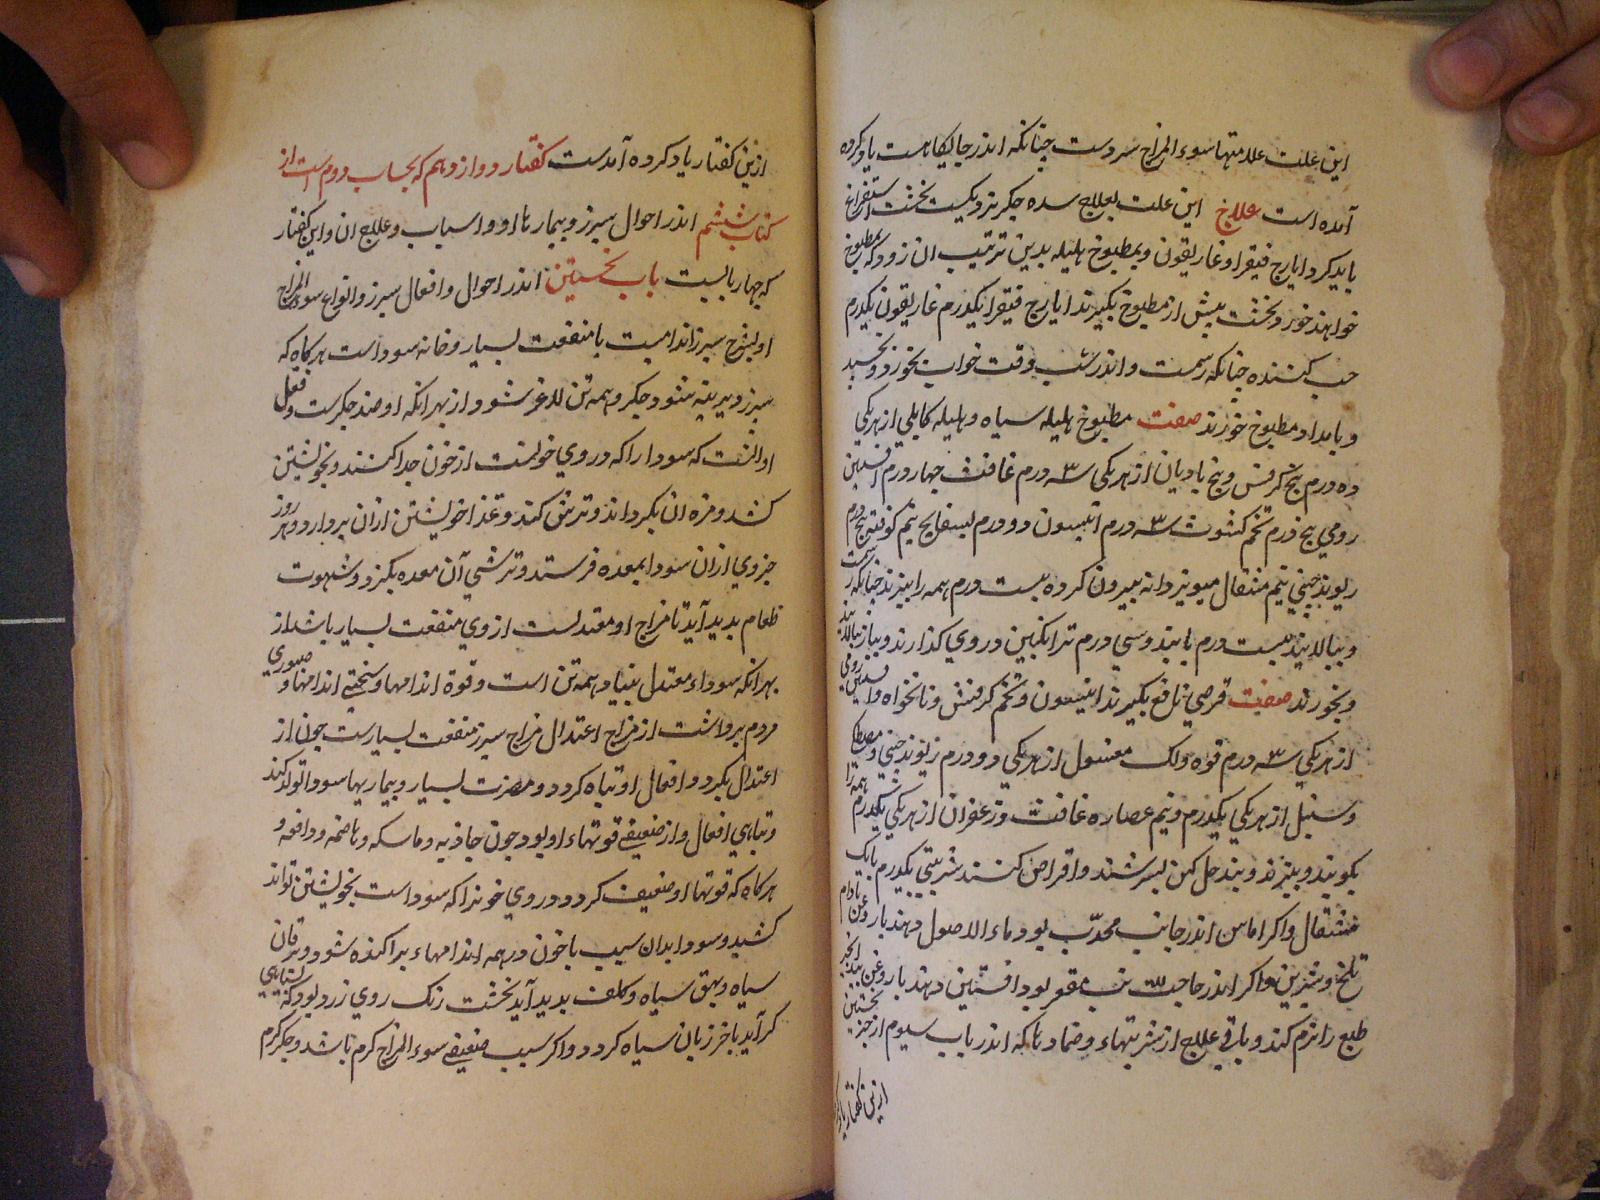 این علت علامتها سوء المزاج سردست چنانکه اندر جایگاهست یاد کرده
آمده است علاج این علت بعلاج سده جگر نزدیکست نخست استفراغ
باید کرد ایارج فیقرا و غاریقون و بمطبوخ هلیله بدین ترتیب ان روز که مطبوخ
خواهند خورد نخست پیش از مطبوخ بگیرند ایارج فیقرا یکدرم غاریقون یکدرم
حب کنند چنانکه رسمت و اندر شب وقت خواب بخورد و بخسبد
و بامداد مطبوخ خورند صفت مطبوخ هلیله سیاه و هلیله کابلی از هر یکی
ده درم بیخ کرفس و بیخ بادیان از هر یکی سه درم غافث چهار درم افسنتین
رومی پنج درم تخم کشوث سه درم انیسون دو درم بسفایج نیم کوفته پنج درم
ریوند چینی نیم مثقال میویز دانه بیرون کرده بیست درم همه را بپزند چنانکه رسمت
و بپالایند بیست درم فانیذ و سی درم ترانگبین در وی گذارند و باز بپالایند
و بخورند صفت قرصی نافع بگیرند انیسون و تخم کرفس و نانخواه و افسنتین رومی
از هر یکی سه درم فوه و لک مغسول از هر یکی دو درم ریوند چینی و مصطکی
و سنبل از هر یکی یکدرم و نیم عصاره غافث و زعفران از هر یکی یکدرم همه را
بکوبند و بپزند و بخل کهن بسرشند و اقراص کنند شربتی یکدرم یا یک
مثقال و اگر اماس اندر جانب محدب بود ماء الاصول دهند با روغن بادام
تلخ و شیرین و اگر اندر جانب مقعر بود افسنتین دهند با روغن بید انجیر
طبع را نرم کند و باقی علاج از شربتهاء و ضمادها که اندر باب سیوم از جزء نخستین
ازین گفتار یاد
ازین گفتار یاد کرده آمدست گفتار دوازدهم که بحساب دوم است از
کتاب ششم اندر احوال سپرز و بیماریها او و اسباب و علاج ان و این گفتار
که چهار بابست باب نخستین اندر احوال و افعال سپرز و انواع سوء المزاج
او بشرح سپرز اندامیست با منفعت بسیار و خانه سوداست هرگاه که
سپرز دیرینه شود جگر و همه تن لاغر شود از بهر انکه او ضد جگرست و فعل
او انست که سودا را که در وی خونست از خون جدا کند و بخویشتن
کشد و مزه ان بگرداند و ترش کند و غذا خویشتن ازان بردارد و هر روز
جزوی ازان سودا بمعده فرستد و ترشی آن معده بگیرد و شهوت
طعام پدید آید تا مزاج او معتدلست از وی منفعت بسیار باشد از
بهر انکه سوداء معتدل بنیاد همه تن است و قوة اندامها و سختی اندامها و صبوری
مردم برداشت از مزاج اعتدال مزاج سپرز منفعت بسیارست چون از
اعتدال بگردد و افعال او تباه گردد و مضرت بسیار و بیماریها سودا تولد کند
و تباهی افعال و از ضعیفی قوتهاء او بود چون جاذبه و ماسکه و هاضمه و دافعه و
هرگاه که قوتها او ضعیف گردد در وی خون را که سوداست بخویشتن نتواند
کشید و سودا بدان سبب با خون در همه اندامهاء پراکنده شود و یرقان
سیاه و بهق سیاه و کلف پدید آید نخست رنگ روی زرد بود که بسیاهی
گراید باخر زبان سیاه گردد و اگر سبب ضعیفی سوء المزاج گرم باشد و جگر گرم